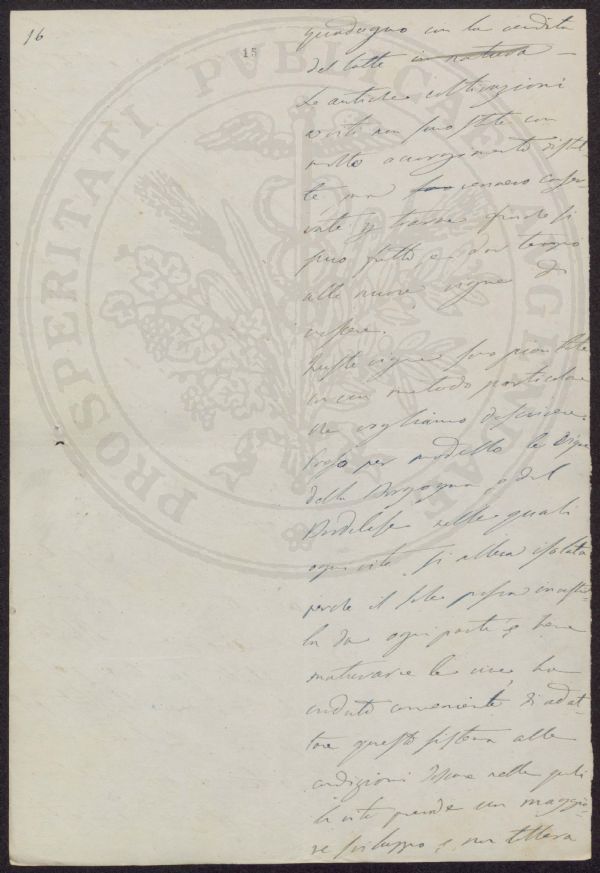 16
15
guadagno con la vendita
del latte in natura —
Le antiche coltivazioni
a viti non sono state con
molto accorgimento distrut-
te ma vennero conser-
vate
può fatto e dar tempo
alle nuove vigne di
Queste vigne sono piantate
con un metodo particolare
che vogliamo descrivere.
Preso per modello le vigne
della Borgogna e del
Bordolese nelle quali
ogni vite si alleva isolata
perché il sole possa investir-
la da ogni parte e bene
maturare le uve, ha
creduto conveniente di adat-
tare questo sistema alle
condizioni nelle quali
la vite prende un maggio-
re sviluppo e non
PROSPERITATI PVBLICAE AVGENDAE